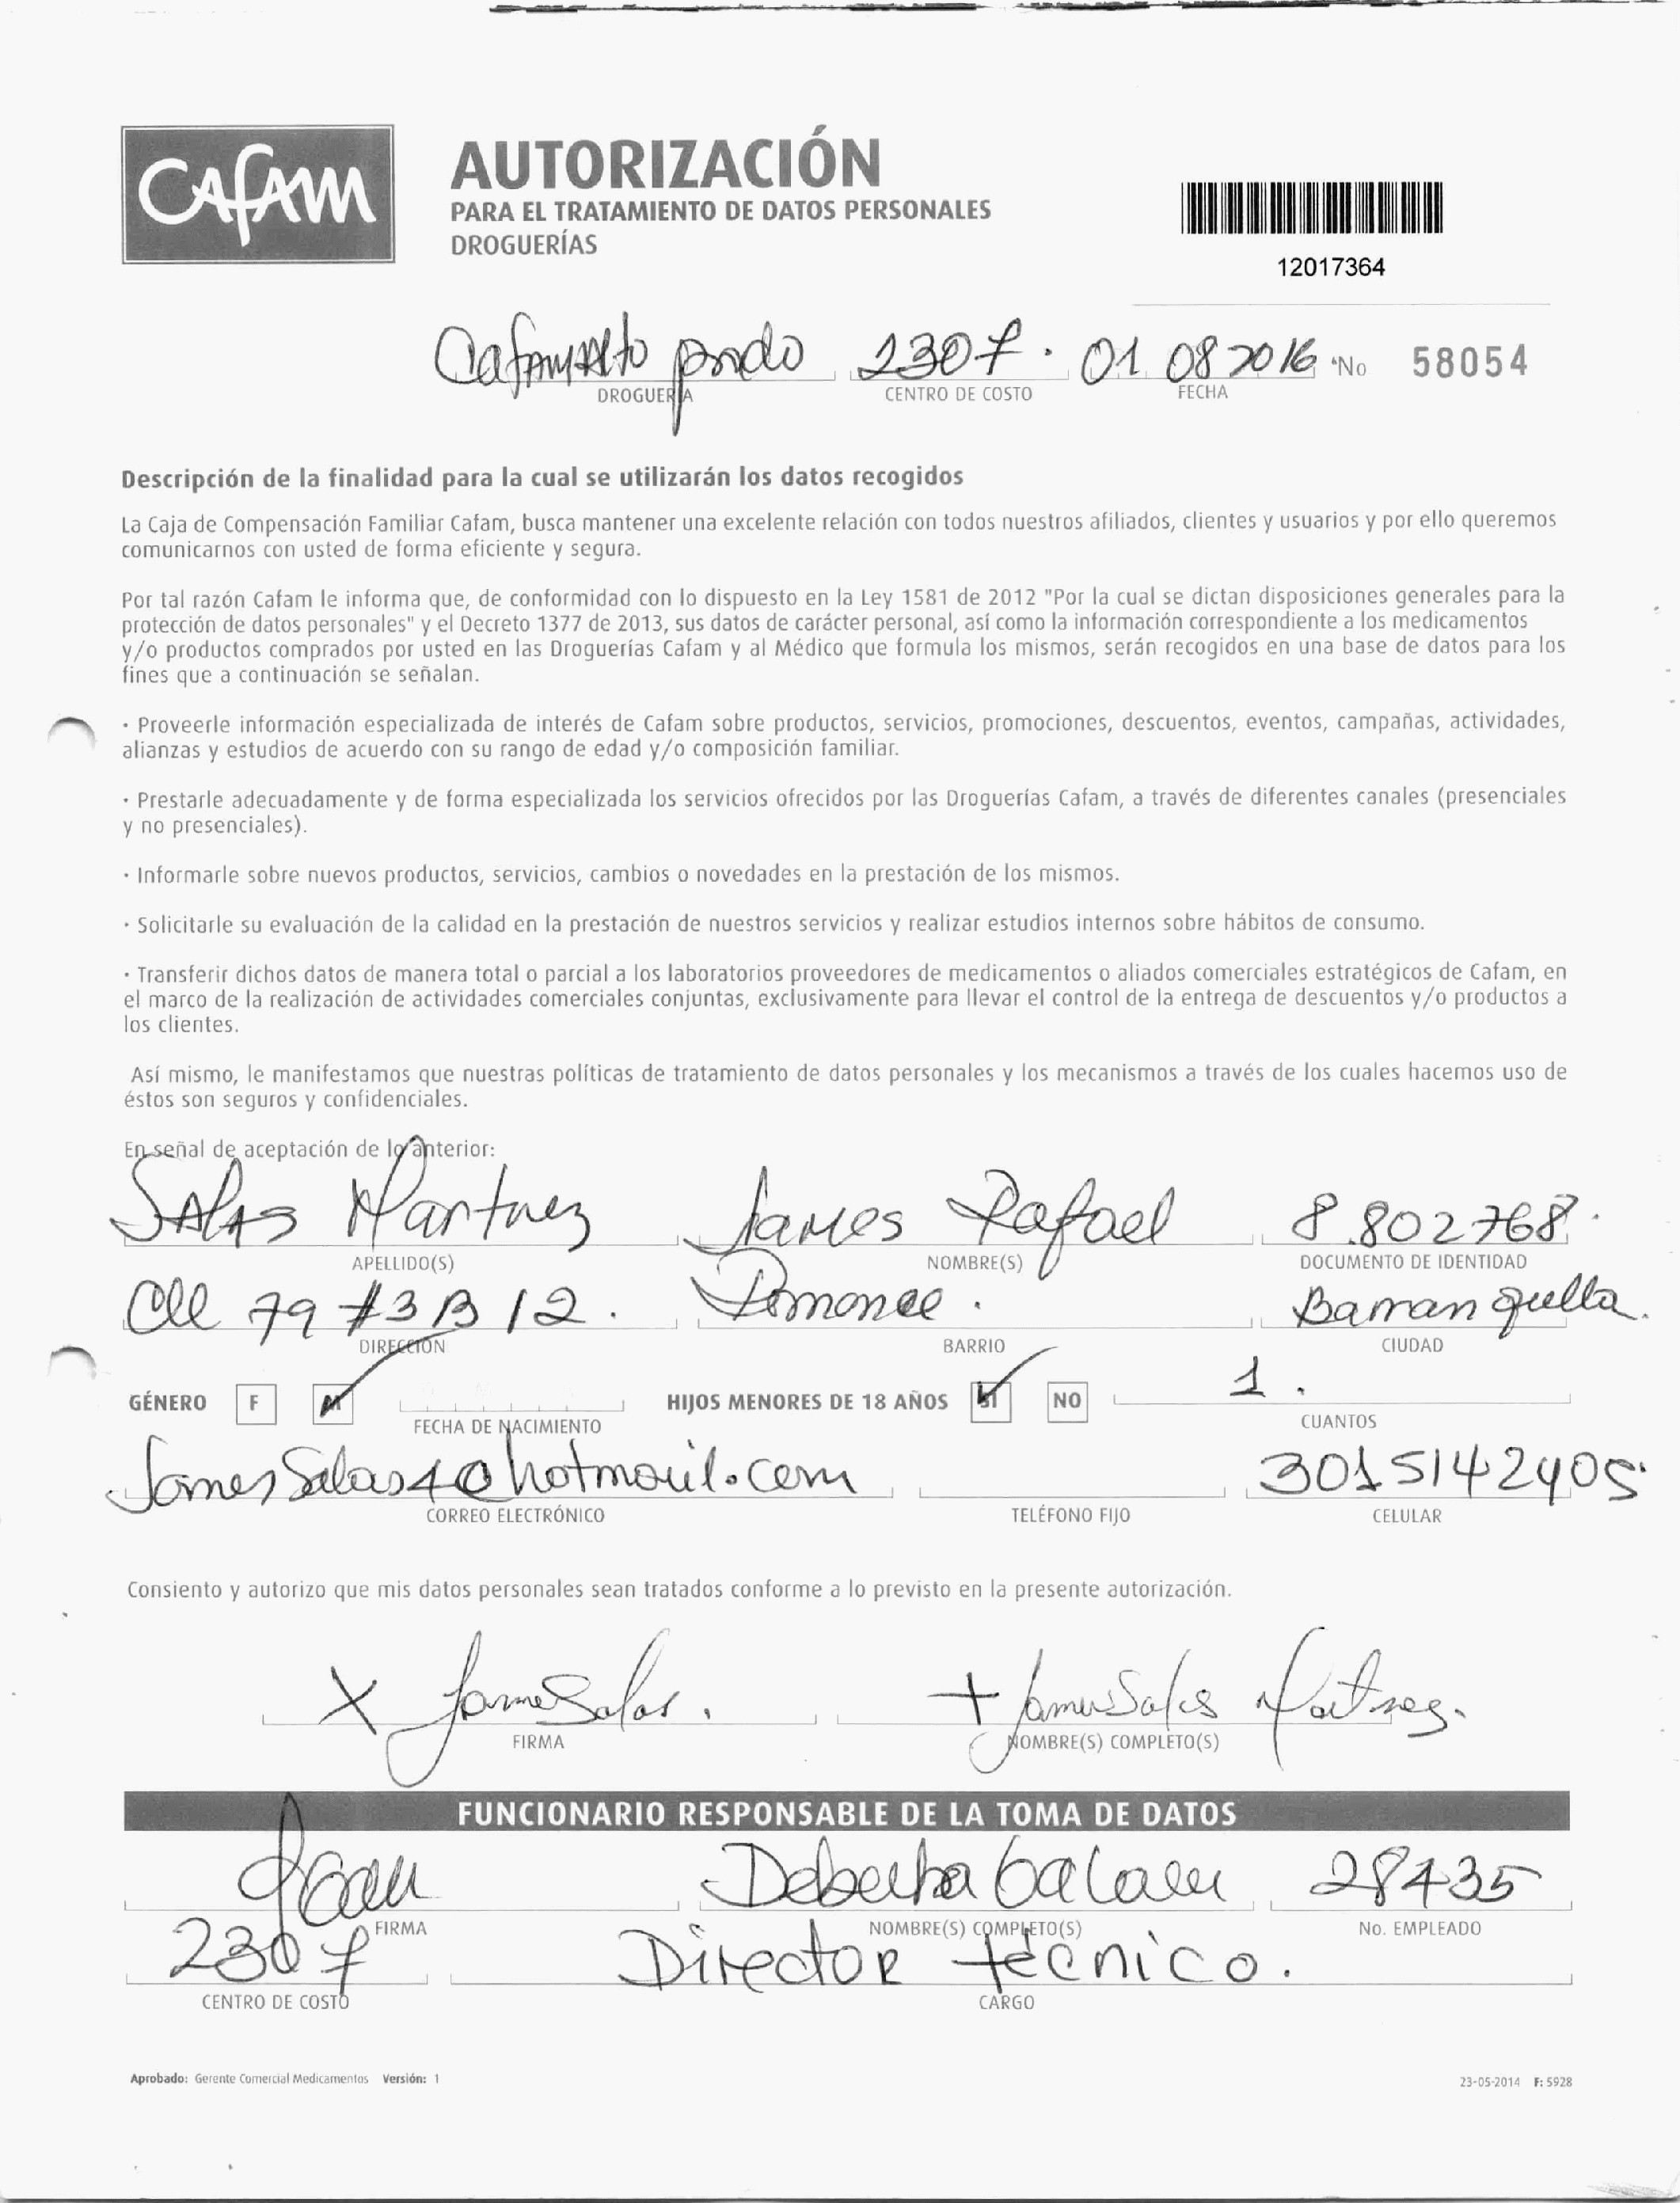 CAFAM
AUTORIZACIÓN
PARA EL TRATAMIENTO DE DATOS PERSONALES
DROGUERÍAS
12017364
Cafam Alto prado 2307. 01 08 2016 No 58054
DROGUERÍA CENTRO DE COSTO FECHA
Descripción de la finalidad para la cual se utilizarán los datos recogidos
La Caja de Compensación Familiar Cafam, busca mantener una excelente relación con todos nuestros afiliados, clientes y usuarios y por ello queremos
comunicarnos con usted de forma eficiente y segura.
Por tal razón Cafam le informa que, de conformidad con lo dispuesto en la Ley 1581 de 2012 "Por la cual se dictan disposiciones generales para la
protección de datos personales" y el Decreto 1377 de 2013, sus datos de carácter personal, así como la información correspondiente a los medicamentos
y/o productos comprados por usted en las Droguerías Cafam y al Médico que formula los mismos, serán recogidos en una base de datos para los
fines que a continuación se señalan.
· Proveerle información especializada de interés de Cafam sobre productos, servicios, promociones, descuentos, eventos, campañas, actividades,
alianzas y estudios de acuerdo con su rango de edad y/o composición familiar.
· Prestarle adecuadamente y de forma especializada los servicios ofrecidos por las Droguerías Cafam, a través de diferentes canales (presenciales
y no presenciales).
· Informarle sobre nuevos productos, servicios, cambios o novedades en la prestación de los mismos.
· Solicitarle su evaluación de la calidad en la prestación de nuestros servicios y realizar estudios internos sobre hábitos de consumo.
· Transferir dichos datos de manera total o parcial a los laboratorios proveedores de medicamentos o aliados comerciales estratégicos de Cafam, en
el marco de la realización de actividades comerciales conjuntas, exclusivamente para llevar el control de la entrega de descuentos y/o productos a
los clientes.
Así mismo, le manifestamos que nuestras políticas de tratamiento de datos personales y los mecanismos a través de los cuales hacemos uso de
éstos son seguros y confidenciales.
En señal de aceptación de lo anterior:
SALAS Martinez James Rafael 8.802768.
APELLIDO(S) NOMBRE(S) DOCUMENTO DE IDENTIDAD
Cll 79 #3B 12. Barranquilla.
DIRECCIÓN BARRIO CIUDAD
GÉNERO F M HIJOS MENORES DE 18 AÑOS SI NO 1.
FECHA DE NACIMIENTO CUANTOS
JamesSalas40hotmail.com 3015142405
CORREO ELECTRÓNICO TELÉFONO FIJO CELULAR
Consiento y autorizo que mis datos personales sean tratados conforme a lo previsto en la presente autorización.
X James Salas. + James Salas Martinez.
FIRMA NOMBRE(S) COMPLETO(S)
FUNCIONARIO RESPONSABLE DE LA TOMA DE DATOS
28435
FIRMA NOMBRE(S) COMPLETO(S) No. EMPLEADO
2307 Director técnico.
CENTRO DE COSTO CARGO
Aprobado: Gerente Comercial Medicamentos Versión: 1 23-05-2014 F: 5928